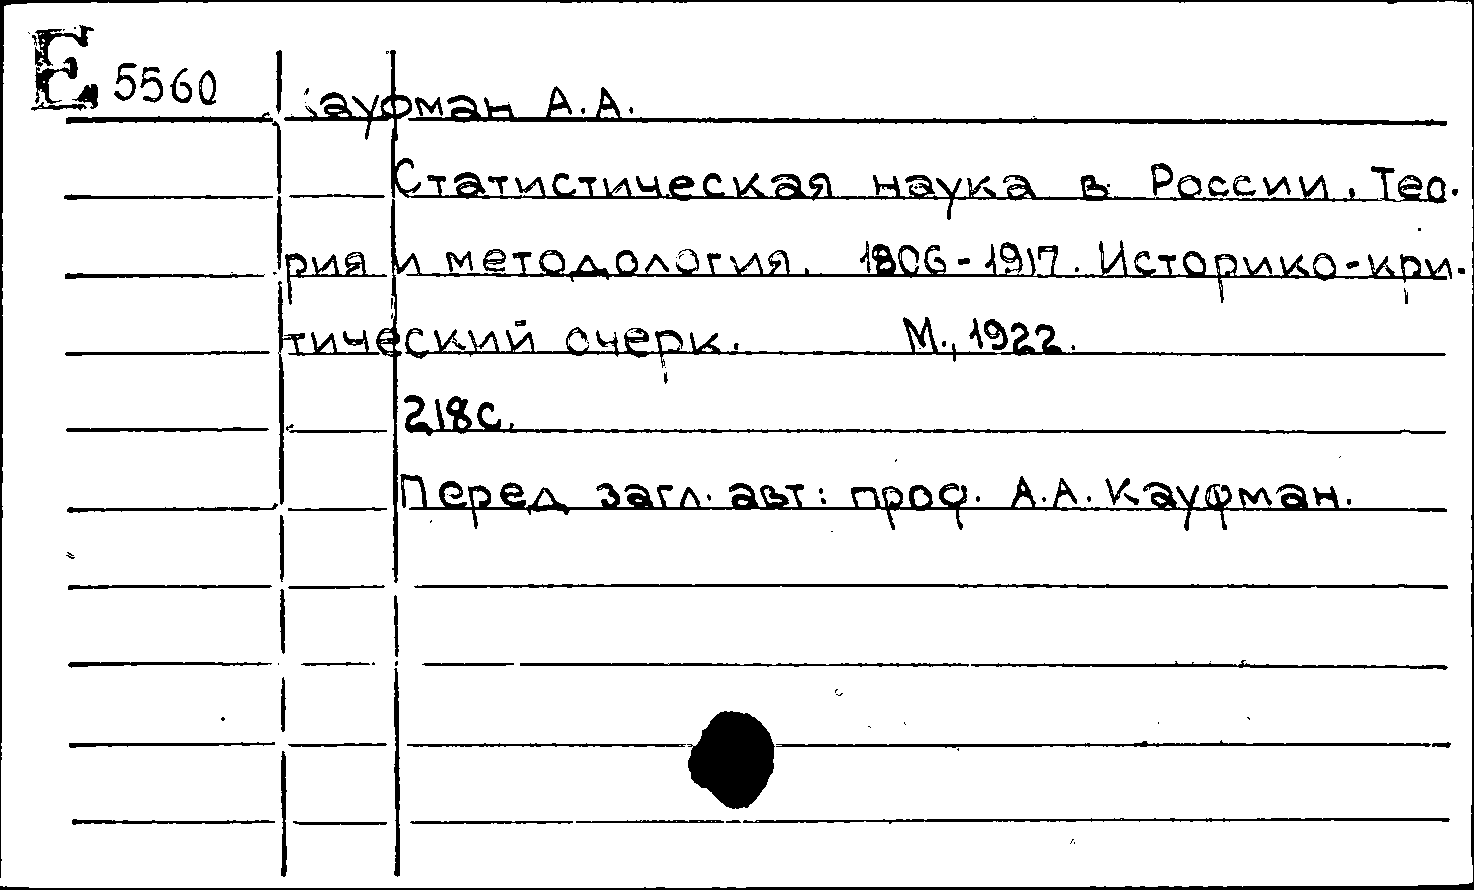 E 5560
Кауфман А.А.
Статистическая наука в России. Тео-
рия и методология. 1806-1917. Историко-кри-
тический очерк. М., 1922.
218с.
Перед загл. авт: проф. А.А. Кауфман.